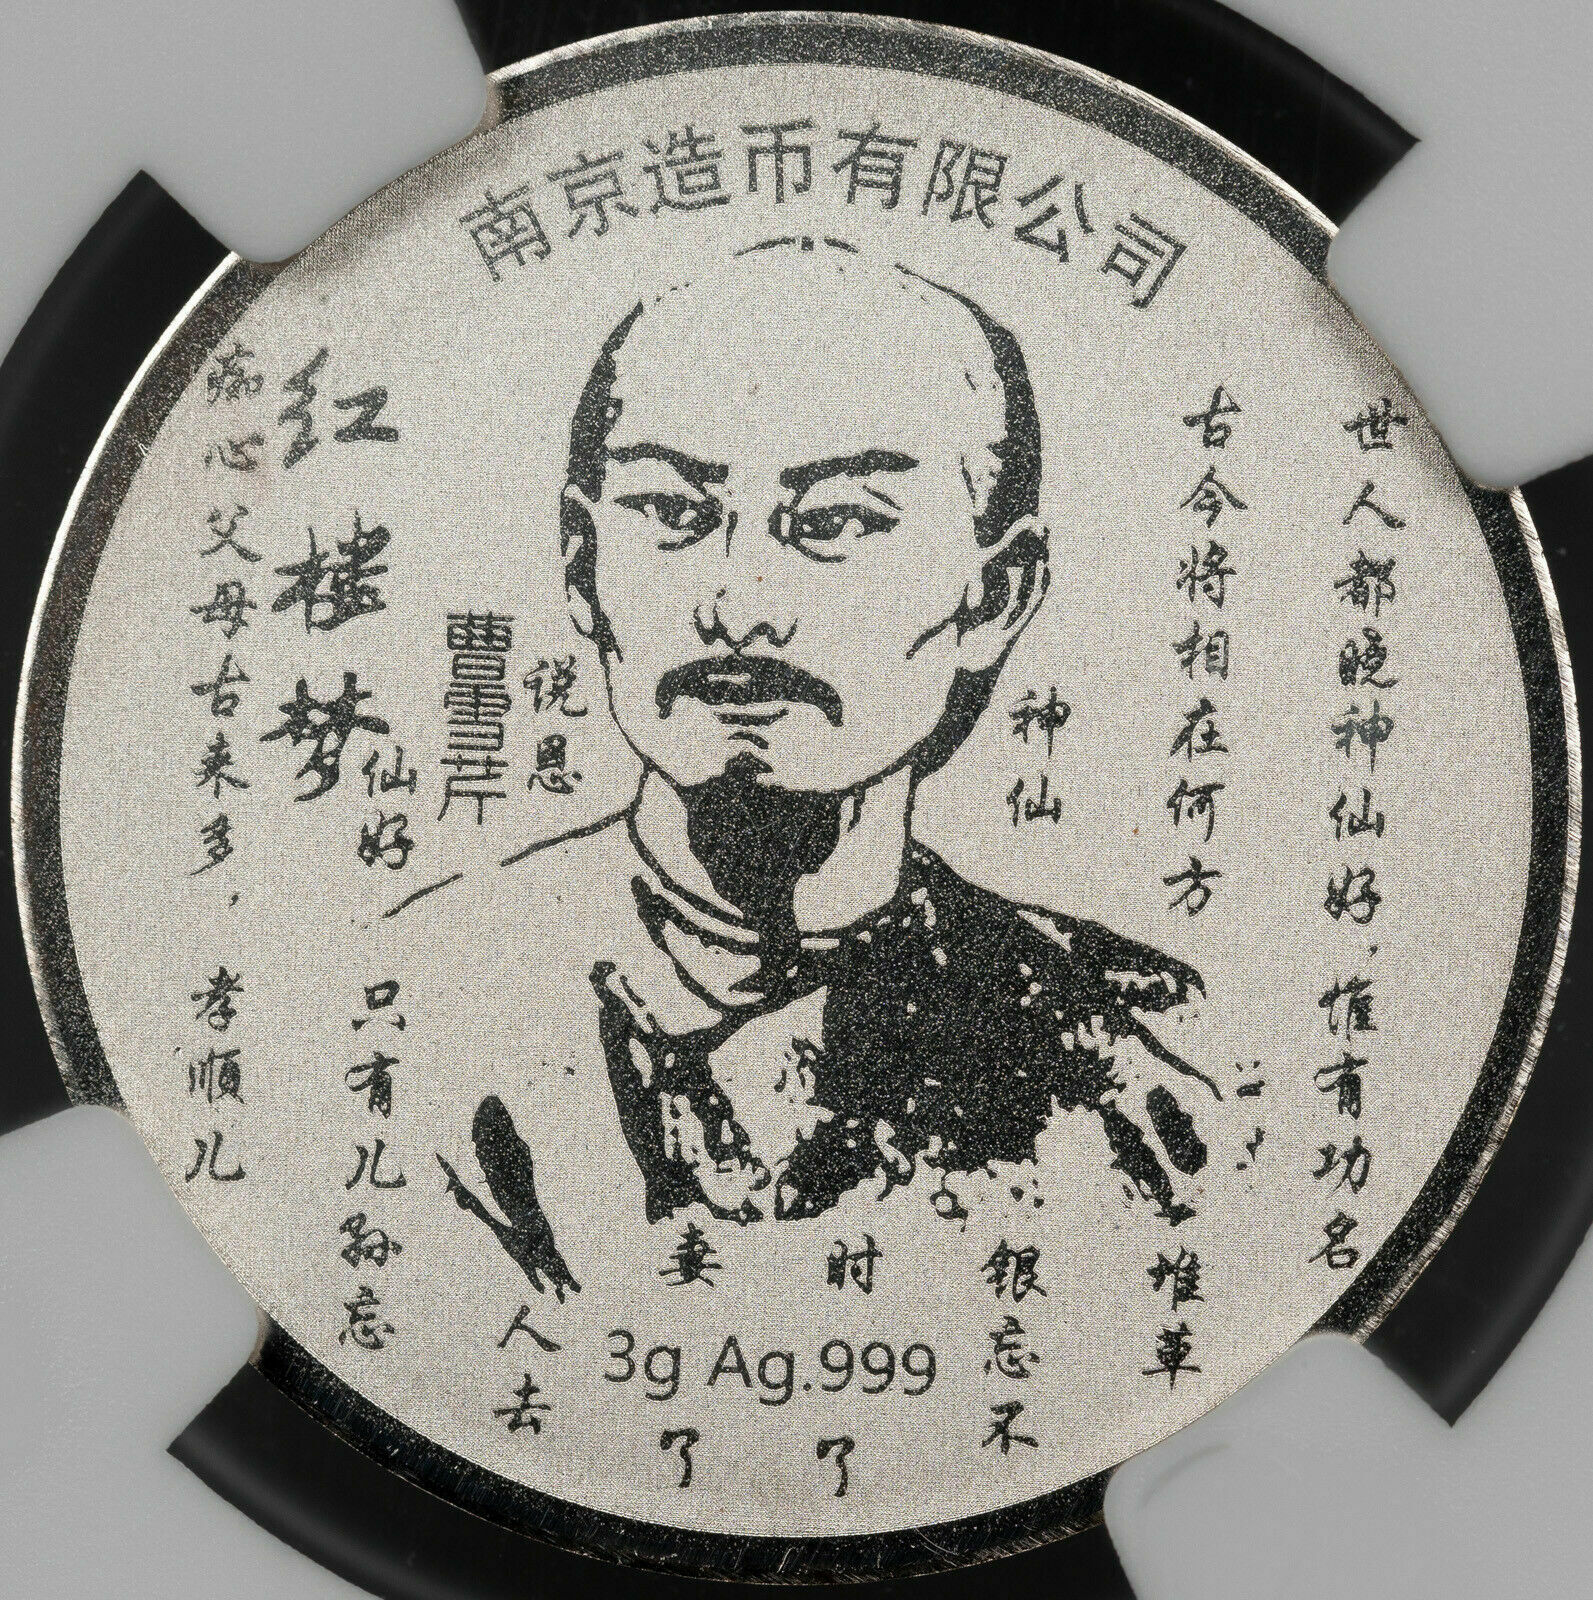 南京造币有限公司
世人都晓神仙好，惟有功名
古今将相在何方
堆草
神仙
银忘不
时
了
妻
了
说恩
人去
曹雪芹
红楼梦
仙好
只有儿孙忘
痴心父母古来多，孝顺儿
3g Ag.999